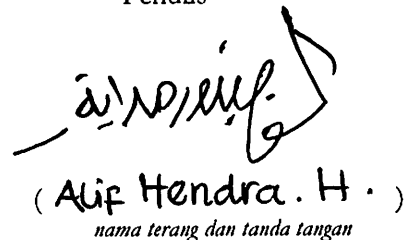 Penulis
( Alif Hendra . H . )
nama terang dan tanda tangan